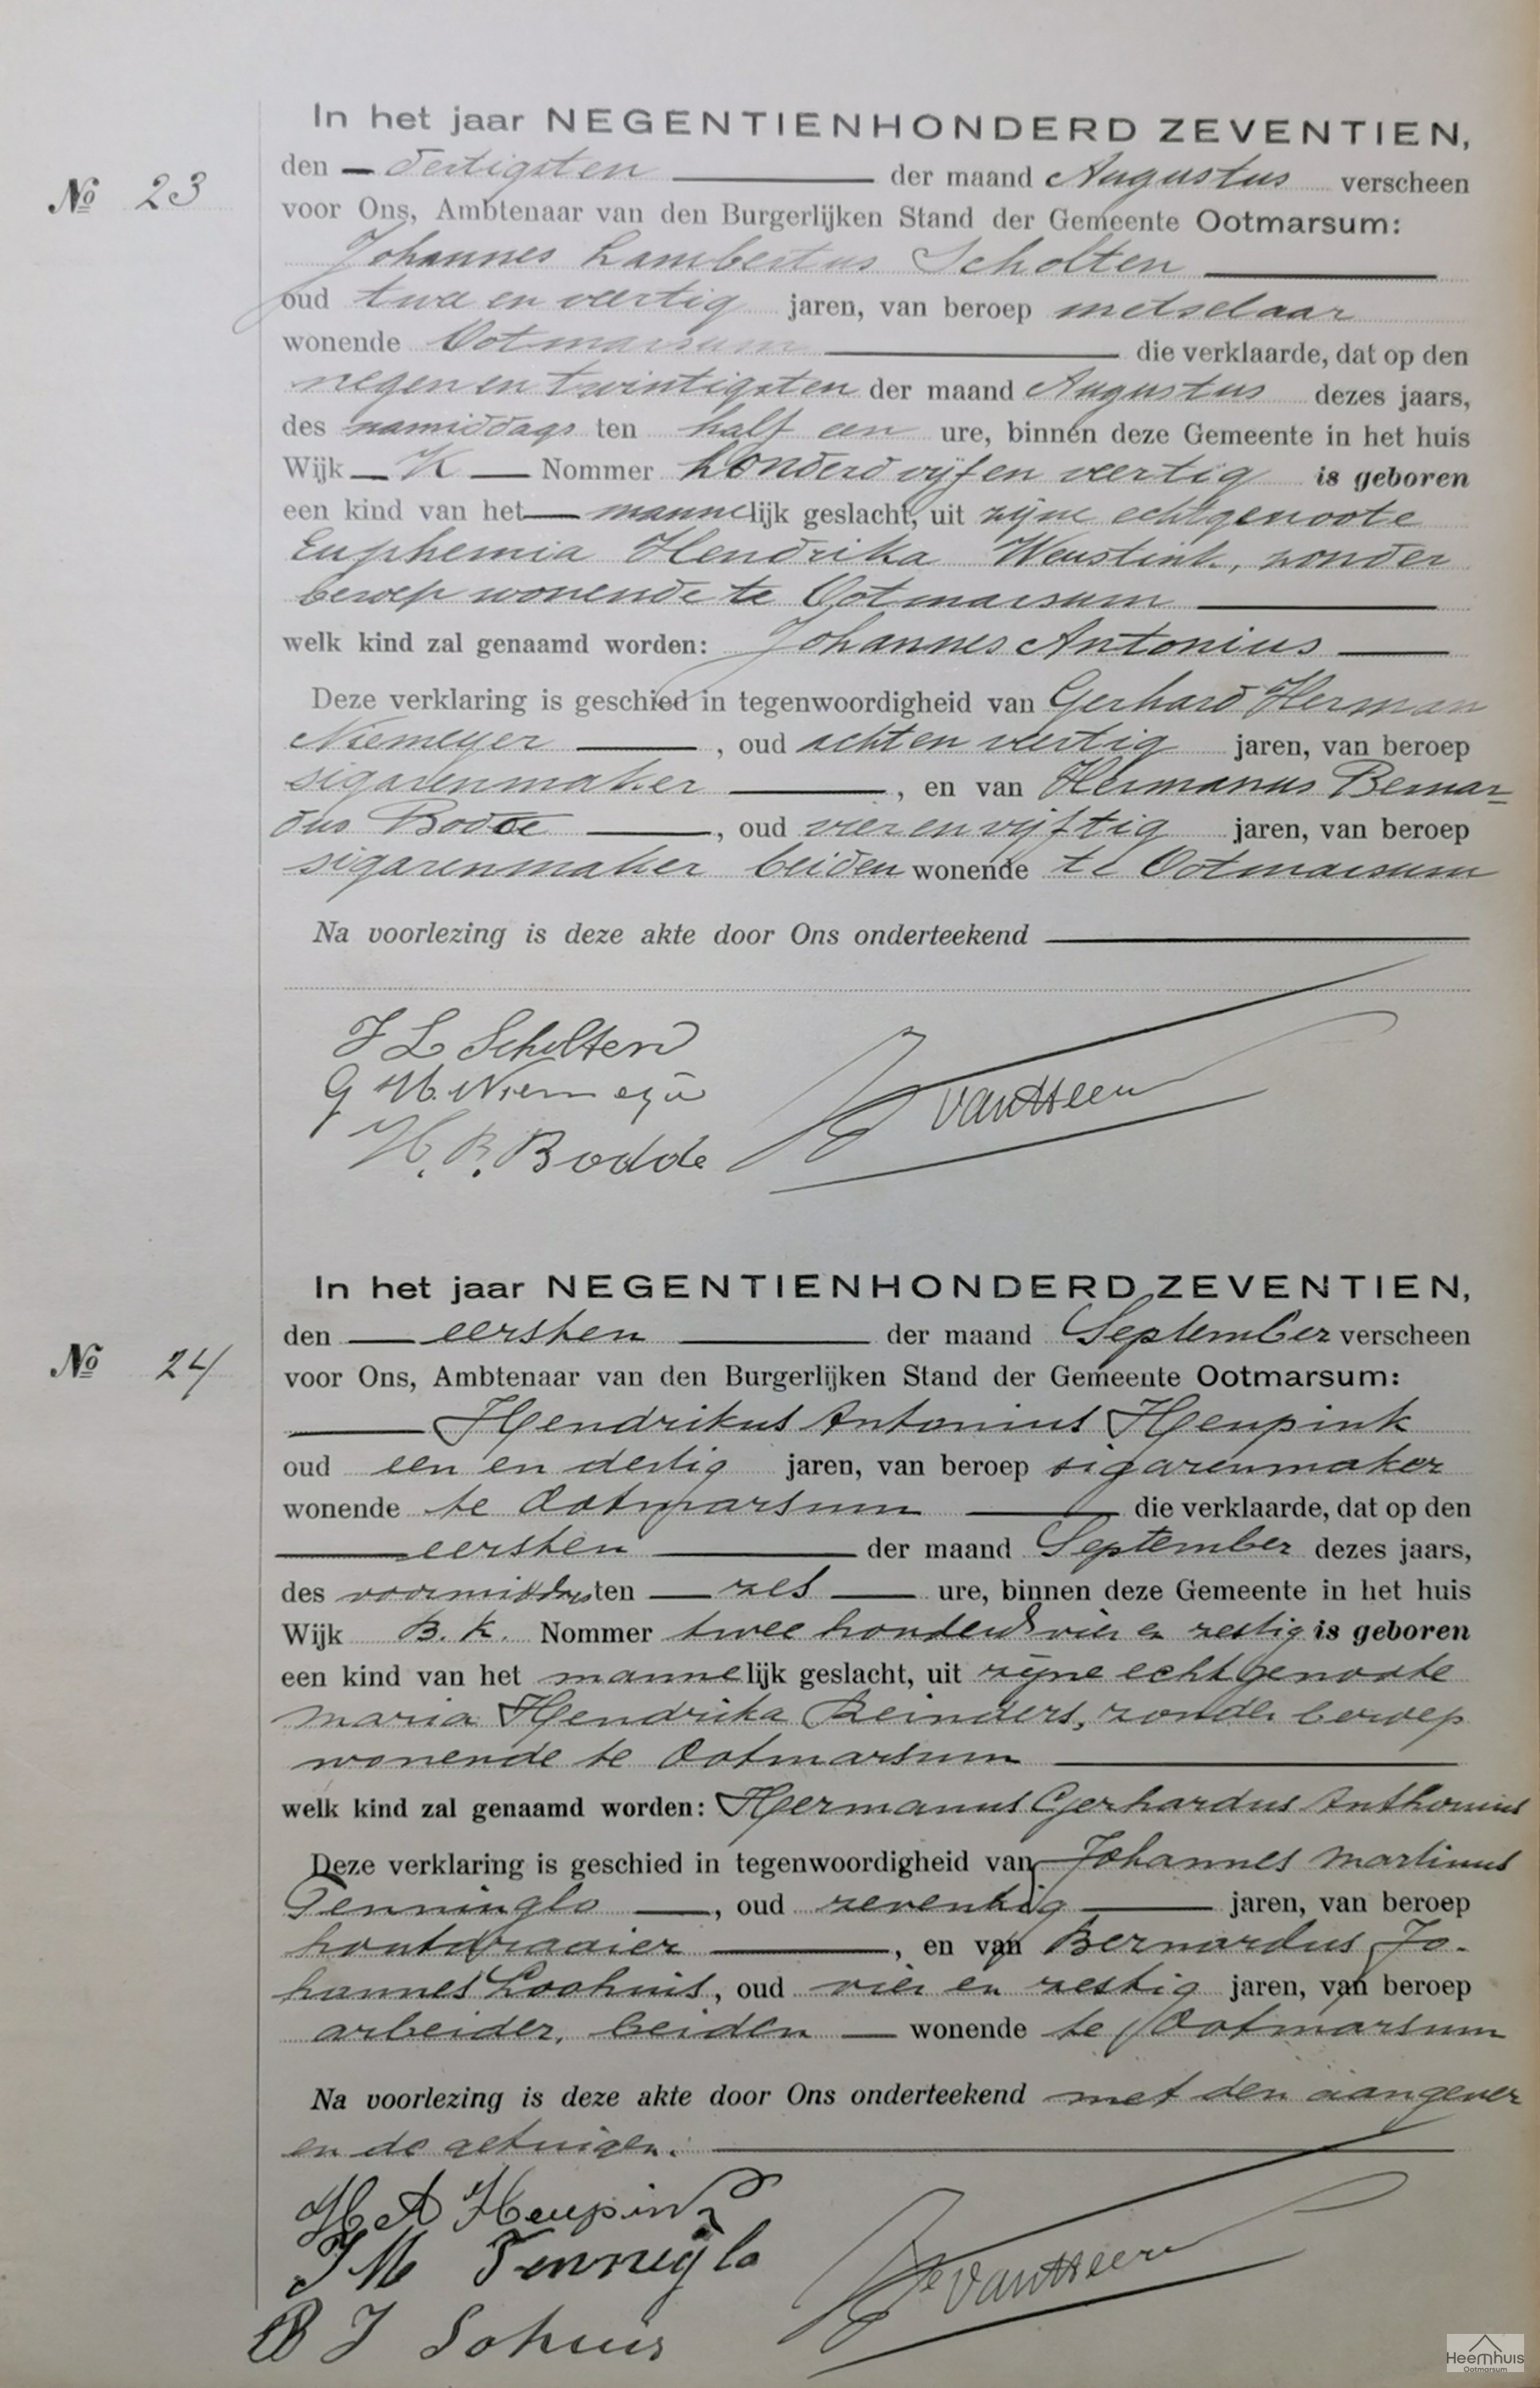 In het jaar NEGENTIENHONDERD ZEVENTIEN,
No 23
den dertigsten der maand Augustus verscheen
voor Ons, Ambtenaar van den Burgerlijken Stand der Gemeente Ootmarsum:
Johannes Lambertus Scholten
oud twee en veertig jaren, van beroep metselaar
wonende Ootmarsum die verklaarde, dat op den
negen en twintigsten der maand Augustus dezes jaars,
des namiddags ten half een ure, binnen deze Gemeente in het huis
Wijk K Nommer honderd vijf en veertig is geboren
een kind van het mannelijk geslacht, uit zijne echtgenoote
Euphemia Hendrika Weustink, zonder
beroep wonende te Ootmarsum
welk kind zal genaamd worden: Johannes Antonius
Deze verklaring is geschied in tegenwoordigheid van Gerhard Herman
Niemeyer , oud acht en veertig jaren, van beroep
sigarenmaker , en van Hermanus Bernar-
dus Bodde , oud vier en vijftig jaren, van beroep
sigarenmaker beiden wonende te Ootmarsum
Na voorlezing is deze akte door Ons onderteekend
J L Scholten
G H. Niemeijer
vanHeen
H. B. Bodde
In het jaar NEGENTIENHONDERD ZEVENTIEN,
No 24
den eersten der maand September verscheen
voor Ons, Ambtenaar van den Burgerlijken Stand der Gemeente Ootmarsum:
Hendrikus Antonius Heupink
oud een en dertig jaren, van beroep sigarenmaker
wonende te Ootmarsum die verklaarde, dat op den
eersten der maand September dezes jaars,
des voormiddags ten zes ure, binnen deze Gemeente in het huis
Wijk B. K. Nommer twee honderd vier en zestig is geboren
een kind van het mannelijk geslacht, uit zijne echtgenoote
Maria Hendrika Reinders, zonder beroep
wonende te Ootmarsum
welk kind zal genaamd worden: Hermanus Gerhardus Anthonius
Deze verklaring is geschied in tegenwoordigheid van Johannes Martinus
Tenninglo , oud zeventig jaren, van beroep
houtdraaier , en van Bernardus Jo-
hannes Loohuis, oud vier en zestig jaren, van beroep
arbeider, beiden wonende te Ootmarsum
Na voorlezing is deze akte door Ons onderteekend met den aangever
en de getuigen.
H A Heupink
J M Tenniglo
vanHeen
B J Lohuis
Heemhuis
Ootmarsum